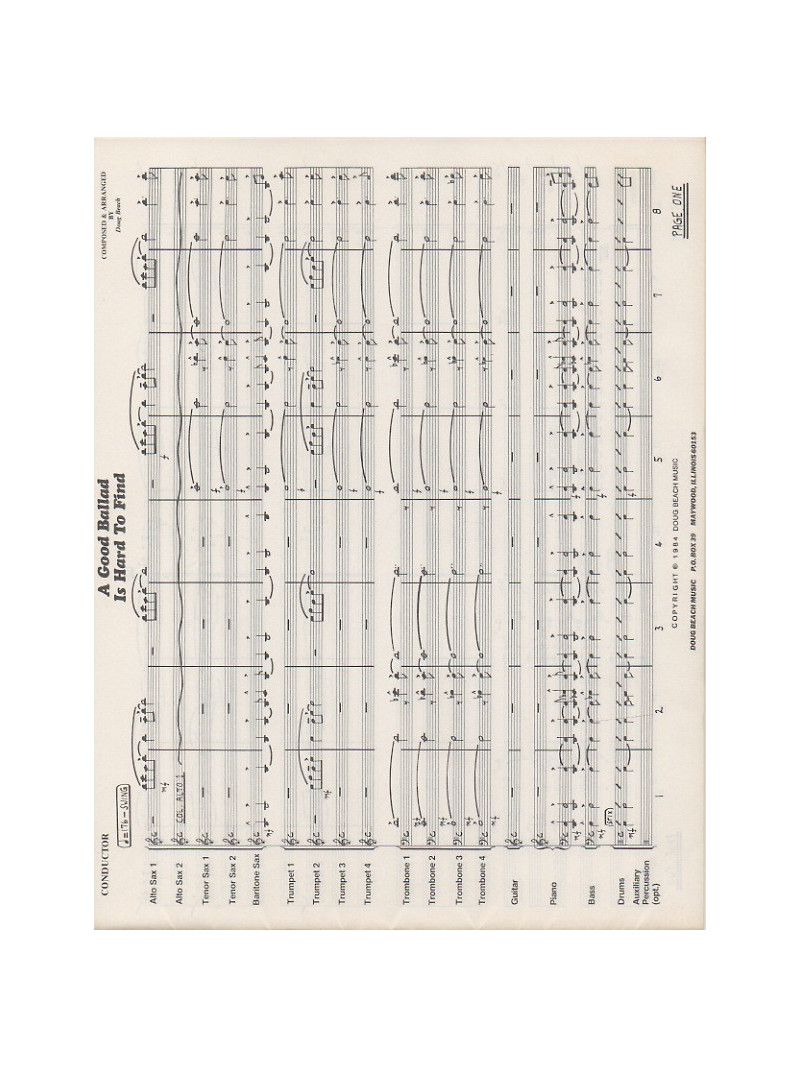 CONDUCTOR
A Good Ballad
Is Hard To Find
COMPOSED & ARRANGED
BY
Doug Beach
♩=176 - SWING
Alto Sax 1
mf
Alto Sax 2
COL. ALTO 1
Tenor Sax 1
Tenor Sax 2
Baritone Sax
mf
Trumpet 1
Trumpet 2
mf
Trumpet 3
Trumpet 4
Trombone 1
mf
Trombone 2
mf
Trombone 3
mf
Trombone 4
mf
Guitar
Piano
mf
Bass
mf
Drums
mf
Auxiliary
Percussion
(opt.)
1 2 3 4 5 6 7 8
COPYRIGHT © 1984 DOUG BEACH MUSIC
PAGE ONE
DOUG BEACH MUSIC P.O. BOX 39 MAYWOOD, ILLINOIS 60153